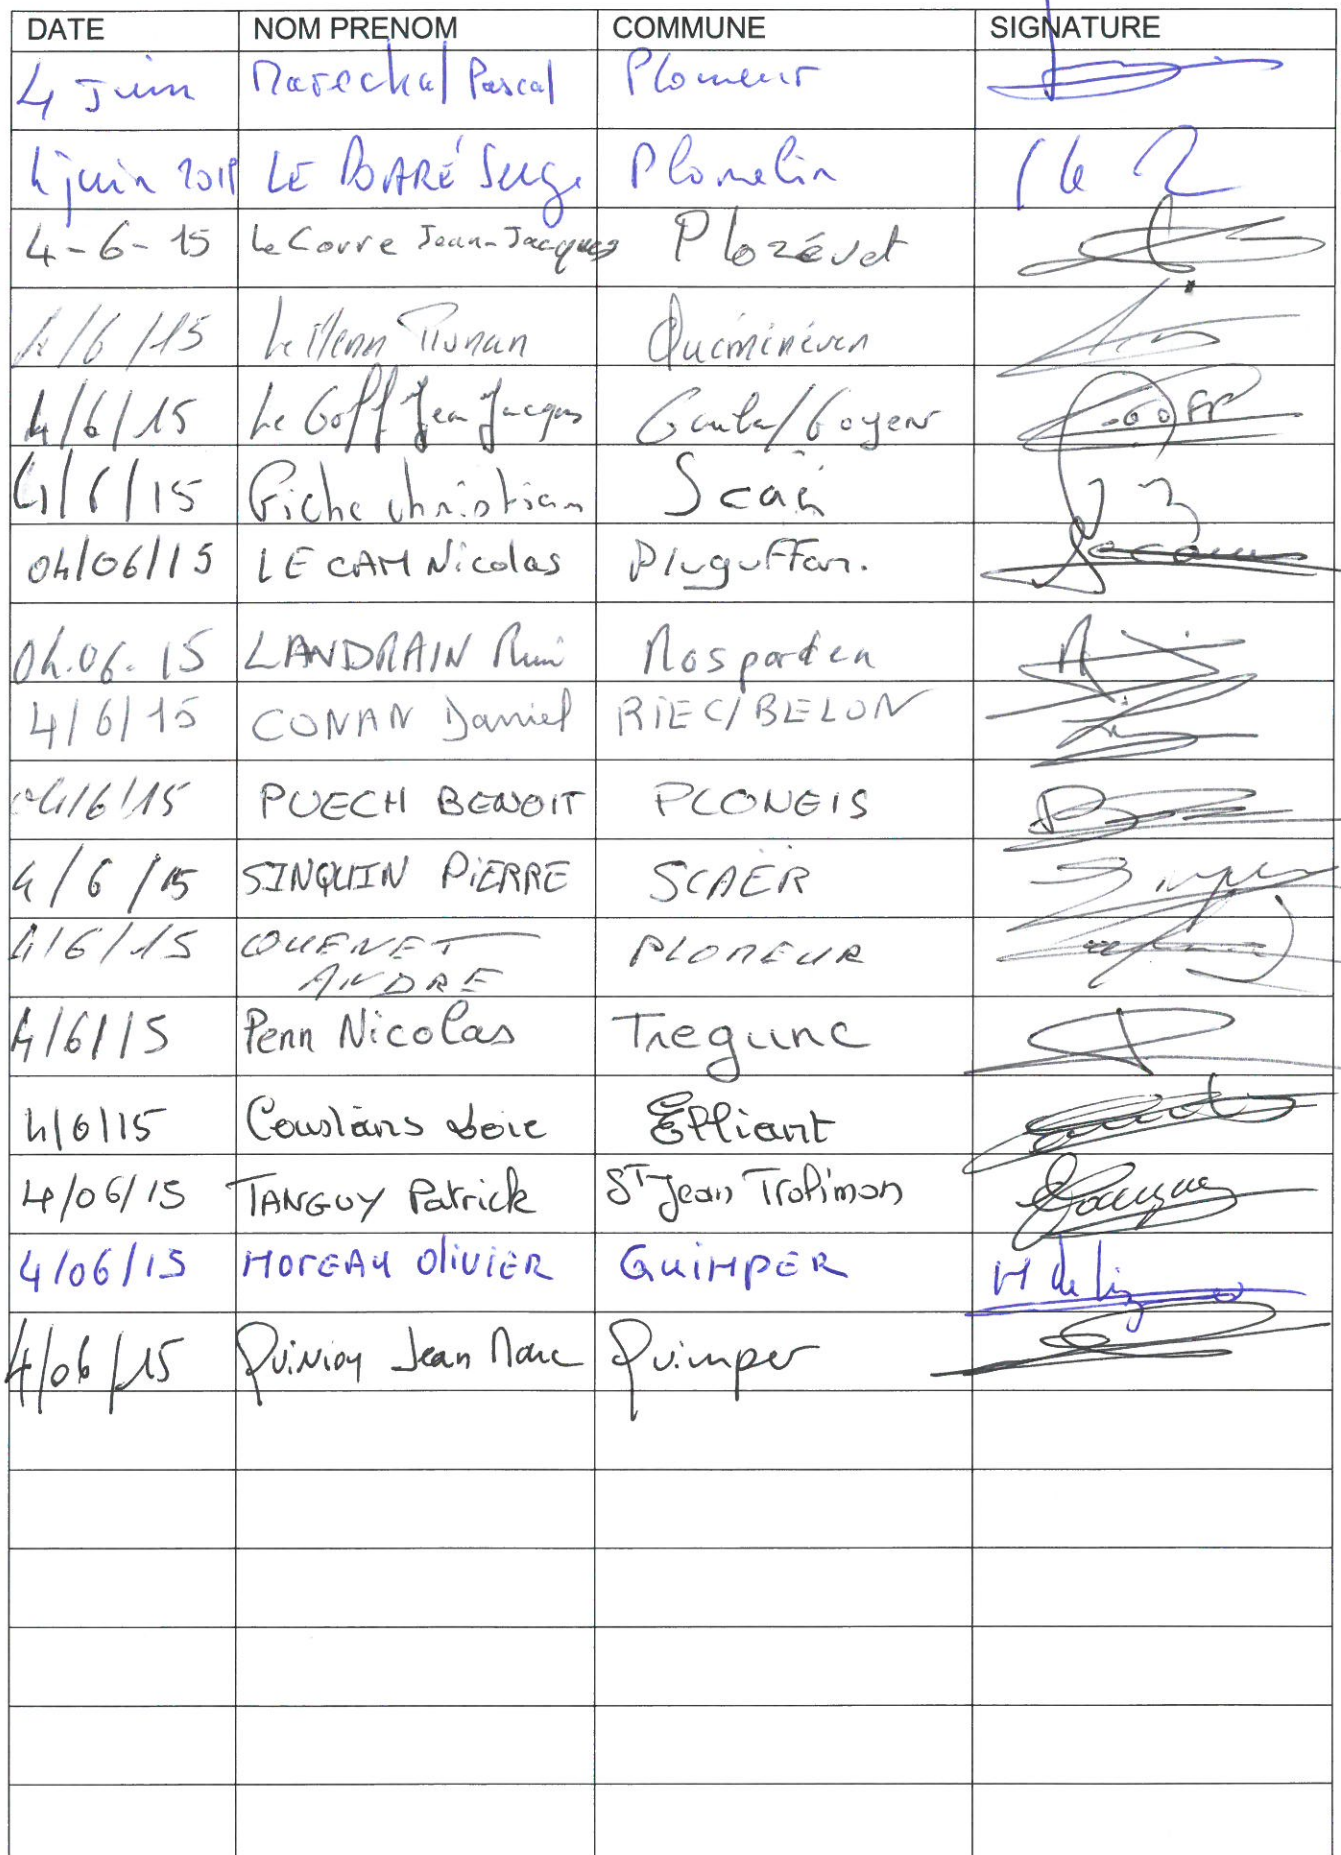 DATE NOM PRENOM COMMUNE SIGNATURE
4 Juin Marechal Pascal Plomeur
4 juin 2015 LE Serge Plomelin
4-6-15 Le Corre Jean-Jacques Plozévet
4/6/15 Le Menn Ronan Quéménéven
4/6/15 Le Goff Jean Jacques Goyen
4/6/15 Christian Scaër
04/06/15 LE CAM Nicolas Pluguffan.
04.06.15 LANDRAIN Rémi Rosporden
4/6/15 CONAN Daniel RIEC/BELON
04/6/15 PUECH BENOIT PLONEIS
4/6/15 SINQUIN PiERRE SCAËR
4/6/15 QUENET ANDRE PLOMEUR
4/6/15 Penn Nicolas Tregunc
4/6/15 Elliant
4/06/15 TANGUY Patrick St Jean Trolimon
4/06/15 MOREAU OliViER QuiMPER
4/06/15 Jean Marc Quimper